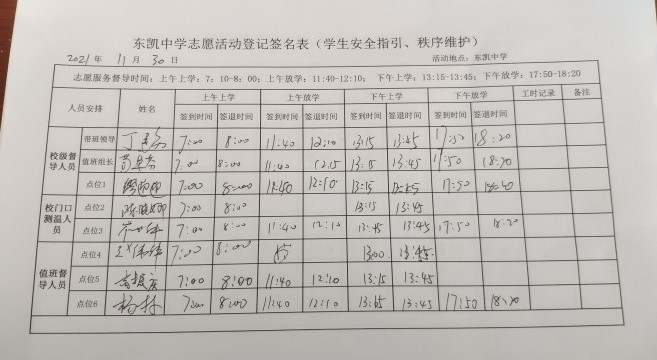 东凯中学志愿活动登记签名表（学生安全指引、秩序维护）
2021 年 11 月 30 日 活动地点：东凯中学
志愿服务督导时间：上午上学：7：10-8：00；上午放学：11:40-12:10； 下午上学：13:15-13:45；下午放学：17:50-18:20
人员安排 姓名 上午上学 上午放学 下午上学 下午放学 工时记录 备注
签到时间 签退时间 签到时间 签退时间 签到时间 签退时间 签到时间 签退时间
校级督导人员 带班领导 7:00 8:00 11:40 12:10 13:15 13:45 17:50 18:20
值班组长 7:00 8:00 11:40 12:15 13:15 13:45 17:50 18:20
点位1 7:00 8:00 12:10 13:15 17:50
校门口测温人员 点位2 7:00 8:00 13:15 13:45
点位3 7:00 8:00 11:40 12:10 13:45 13:45 17:50 18:20
值班督导人员 点位4 7:00 8:00 13:00 13:45
点位5 7:00 8:00 11:40 12:10 13:15 13:45
点位6 杨林 7:00 8:00 11:40 12:10 13:45 17:50 18:20